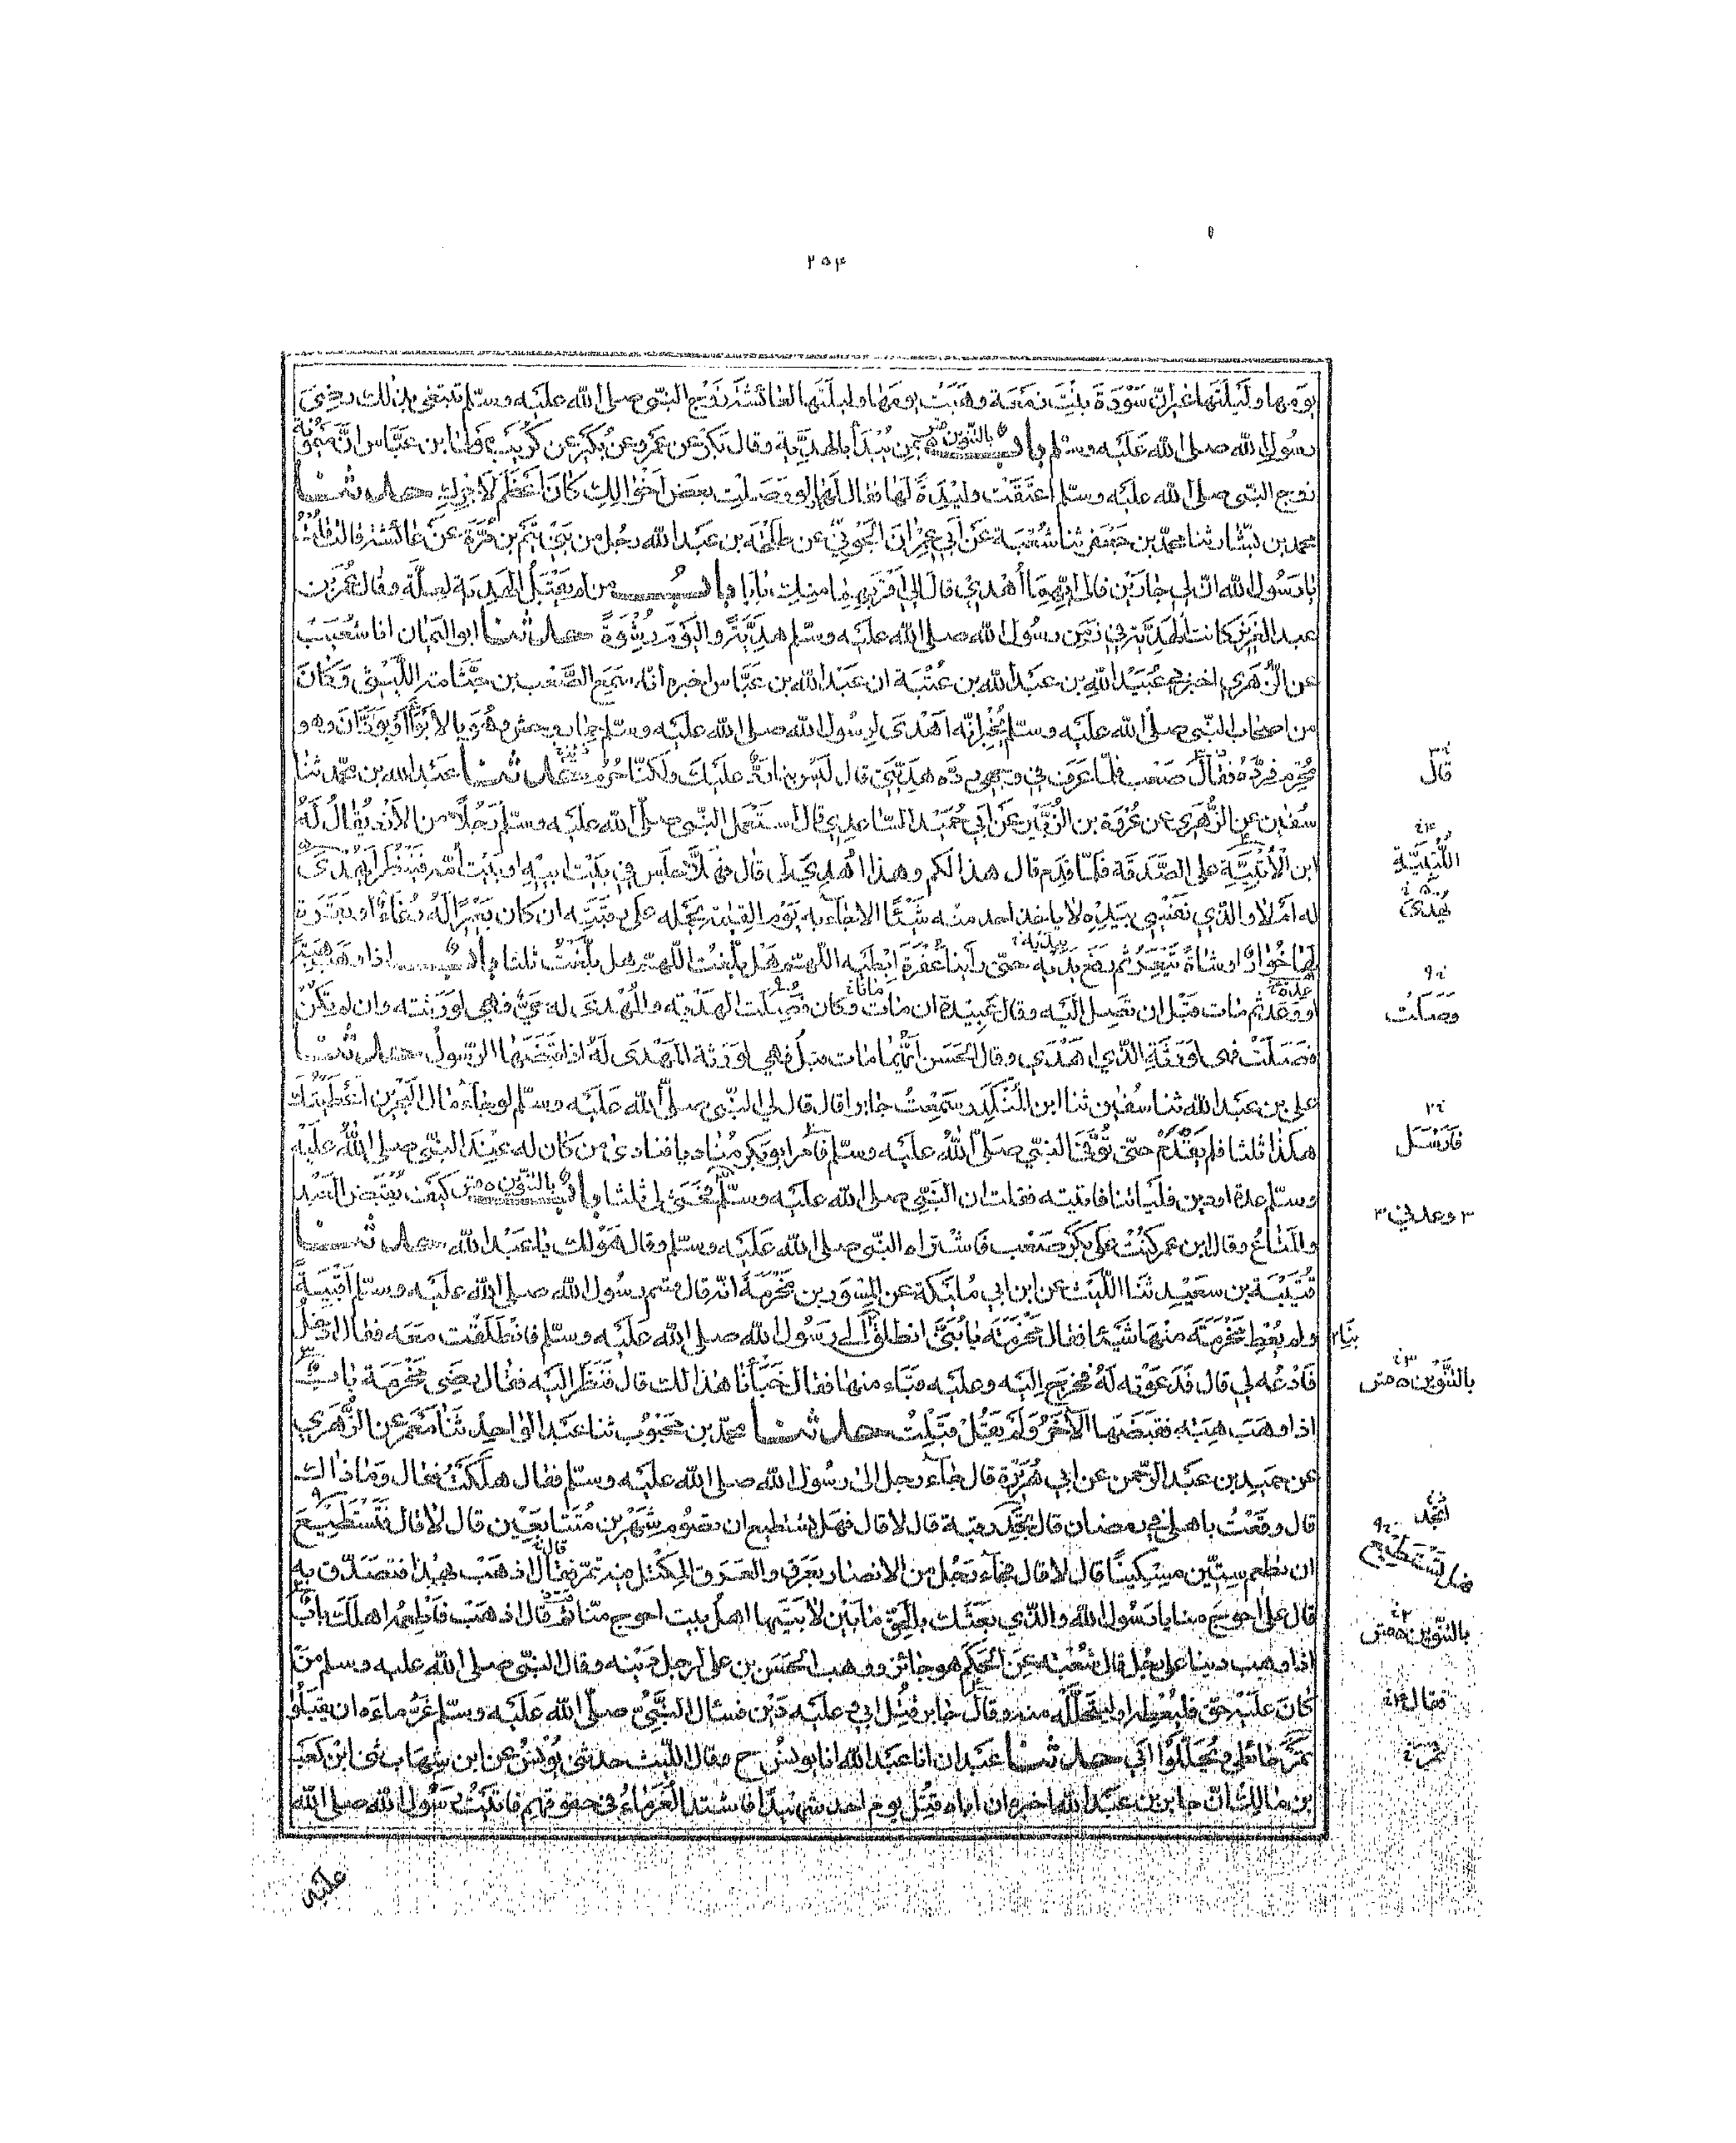 ٢٥٤
يومها وليلتها غير ان سودة بنت زمعة وهبت يومها وليلتها لعائشة زوج النبي صلى الله عليه وسلم تبتغي بذلك رضى
رسول الله صلى الله عليه وسلم باب بالتنوين بمن يبدأ بالهدية وقال بكر عن عمرو عن بكير عن كريب مولى ابن عباس ان ميمونة
زوج النبي صلى الله عليه وسلم اعتقت وليدة لها فقال لها ولو وصلت بعض اخوالك كان اعظم لاجرك حدثنا
محمد بن بشار ثنا محمد بن جعفر ثنا شعبة عن ابي عمران الجوني عن طلحة بن عبد الله رجل من بني تيم بن مرة عن عائشة قالت قلت
يا رسول الله ان لي جارين فالى ايهما اهدي قال الى اقربهما منك بابا باب من لم يقبل الهدية لعلة وقال عمر بن
عبد العزيز كانت الهدية في زمن رسول الله صلى الله عليه وسلم هدية واليوم رشوة حدثنا ابو اليمان انا شعيب
عن الزهري اخبرني عبيد الله بن عبد الله بن عتبة ان عبد الله بن عباس اخبره انه سمع الصعب بن جثامة الليثي وكان
من اصحاب النبي صلى الله عليه وسلم يخبر انه اهدى لرسول الله صلى الله عليه وسلم حمار وحش وهو بالابواء او بودان وهو
محرم فرده فقال صعب فلما عرف في وجهي رده هديتي قال ليس بنا رد عليك ولكنا حرم حدثنا عبد الله بن محمد ثنا
قال
سفين عن الزهري عن عروة بن الزبير عن ابي حميد الساعدي قال استعمل النبي صلى الله عليه وسلم رجلا من الازد يقال له
ابن الاتبية على الصدقة فلما قدم قال هذا لكم وهذا اهدي لي قال فهلا جلس في بيت ابيه او بيت امه فينظر ايهدى
اللتبية
له ام لا والذي نفسي بيده لا ياخذ احد منه شيئا الا جاء به يوم القيمة يحمله على رقبته ان كان بعيرا له رغاء او بقرة
يهدى
لها خوار او شاة تيعر ثم رفع يديه حتى راينا عفرة ابطيه اللهم هل بلغت اللهم هل بلغت ثلثا باب اذا وهب هبة
او وعد ثم مات قبل ان تصل اليه وقال عبيدة ان مات وكان فصلت الهدية والمهدى له حي فهي لورثته وان لم تكن
وصلت
فصلت فهي لورثة الذي اهدى وقال الحسن ايهما مات قبل فهي لورثة المهدى له اذا قبضها الرسول حدثنا
علي بن عبد الله ثنا سفين ثنا ابن المنكدر سمعت جابرا قال قال لي النبي صلى الله عليه وسلم لو جاء مال البحرين اعطيتك
هكذا ثلثا فلم يقدم حتى توفي النبي صلى الله عليه وسلم فامر ابو بكر مناديا فنادى من كان له عند النبي صلى الله عليه
فارسل
وسلم عدة او دين فلياتنا فاتيته فقلت ان النبي صلى الله عليه وسلم فحثى لي ثلثا باب بالتنوين كيف يقبض العبد
وعدني
والمتاع وقال ابن عمر كنت على بكر صعب فاشتراه النبي صلى الله عليه وسلم وقال هو لك يا عبد الله حدثنا
قتيبة بن سعيد ثنا الليث عن ابن ابي مليكة عن المسور بن مخرمة انه قال قسم رسول الله صلى الله عليه وسلم اقبية
ولم يعط مخرمة منها شيئا فقال مخرمة يا بني انطلق الى رسول الله صلى الله عليه وسلم فانطلقت معه فقال ادخل
بنا
فادعه لي قال فدعوته له فخرج اليه وعليه قباء منها فقال خبأنا هذا لك قال فنظر اليه فقال رضي مخرمة باب
بالتنوين
اذا وهب هبة فقبضها الآخر ولم يقل قبلت حدثنا محمد بن محبوب ثنا عبد الواحد ثنا معمر عن الزهري
عن حميد بن عبد الرحمن عن ابي هريرة قال جاء رجل الى رسول الله صلى الله عليه وسلم فقال هلكت فقال وما ذاك
قال وقعت باهلي في رمضان قال تجد رقبة قال لا قال فهل تستطيع ان تصوم شهرين متتابعين قال لا قال فتستطيع
اتجد
ان تطعم ستين مسكينا قال لا قال فجاء رجل من الانصار بعرق والعرق المكتل فيه تمر فقال اذهب بهذا فتصدق به
قال على احوج منا يا رسول الله والذي بعثك بالحق ما بين لابتيها اهل بيت احوج منا قال اذهب فاطعمه اهلك باب
بالتنوين
اذا وهب دينا على رجل قال شعبة عن الحكم هو جائز ووهب الحسن بن علي لرجل دينه وقال النبي صلى الله عليه وسلم من
كان عليه حق فليعطه او ليتحلله منه وقال جابر قتل ابي وعليه دين فسأل النبي صلى الله عليه وسلم غرماءه ان يقبلوا
فقال
تمر حائطي ويحللوا ابي حدثنا عبدان انا عبد الله انا يونس ح وقال الليث حدثني يونس عن ابن شهاب ثني ابن كعب
بن مالك ان جابر بن عبد الله اخبره ان اباه قتل يوم احد شهيدا فاشتد الغرماء في حقوقهم فاتيت رسول الله صلى الله
عليه